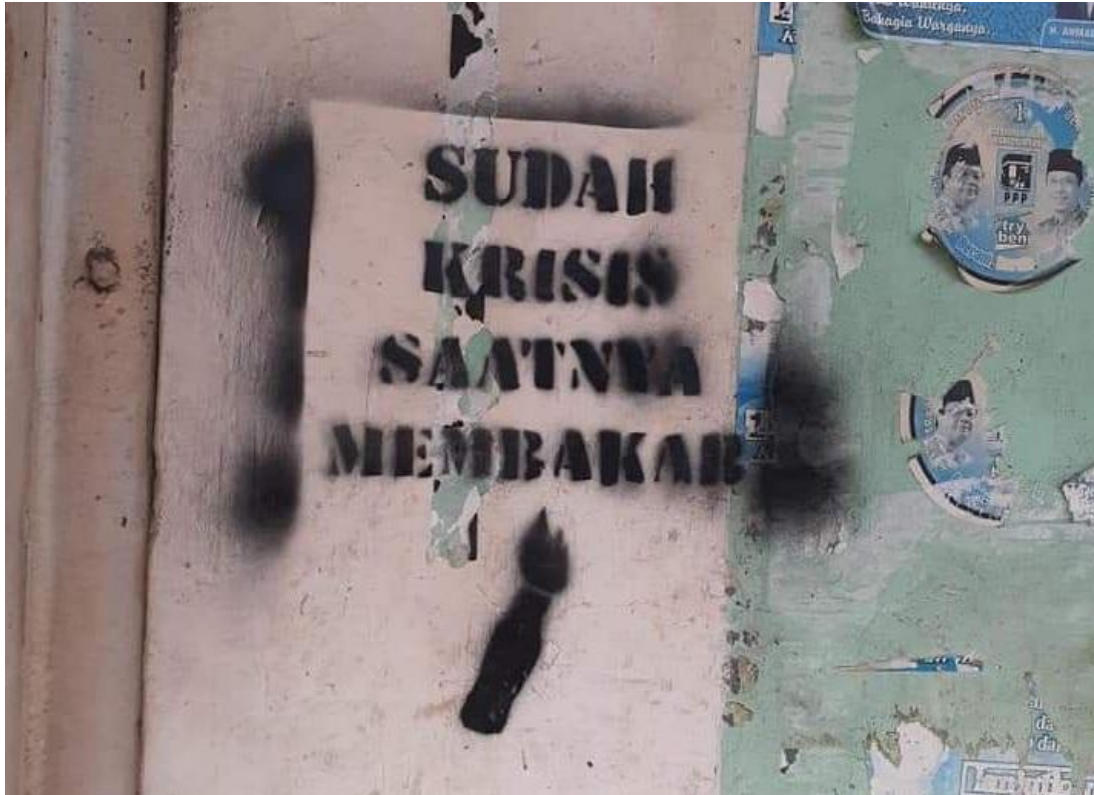 SUDAH
KRISIS
SAATNYA
MEMBAKAR
Bahagia Warganya...
1
PPP
try
ben
da